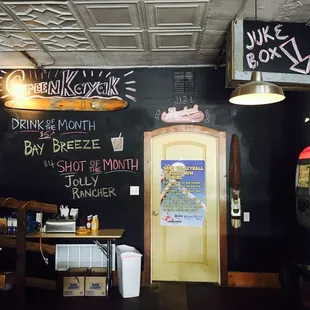 JUKE
BOX
Green Kayak
DRINK OF THE MONTH
BAY BREEZE
$4 SHOT OF THE MONTH
JOLLY
RANCHER